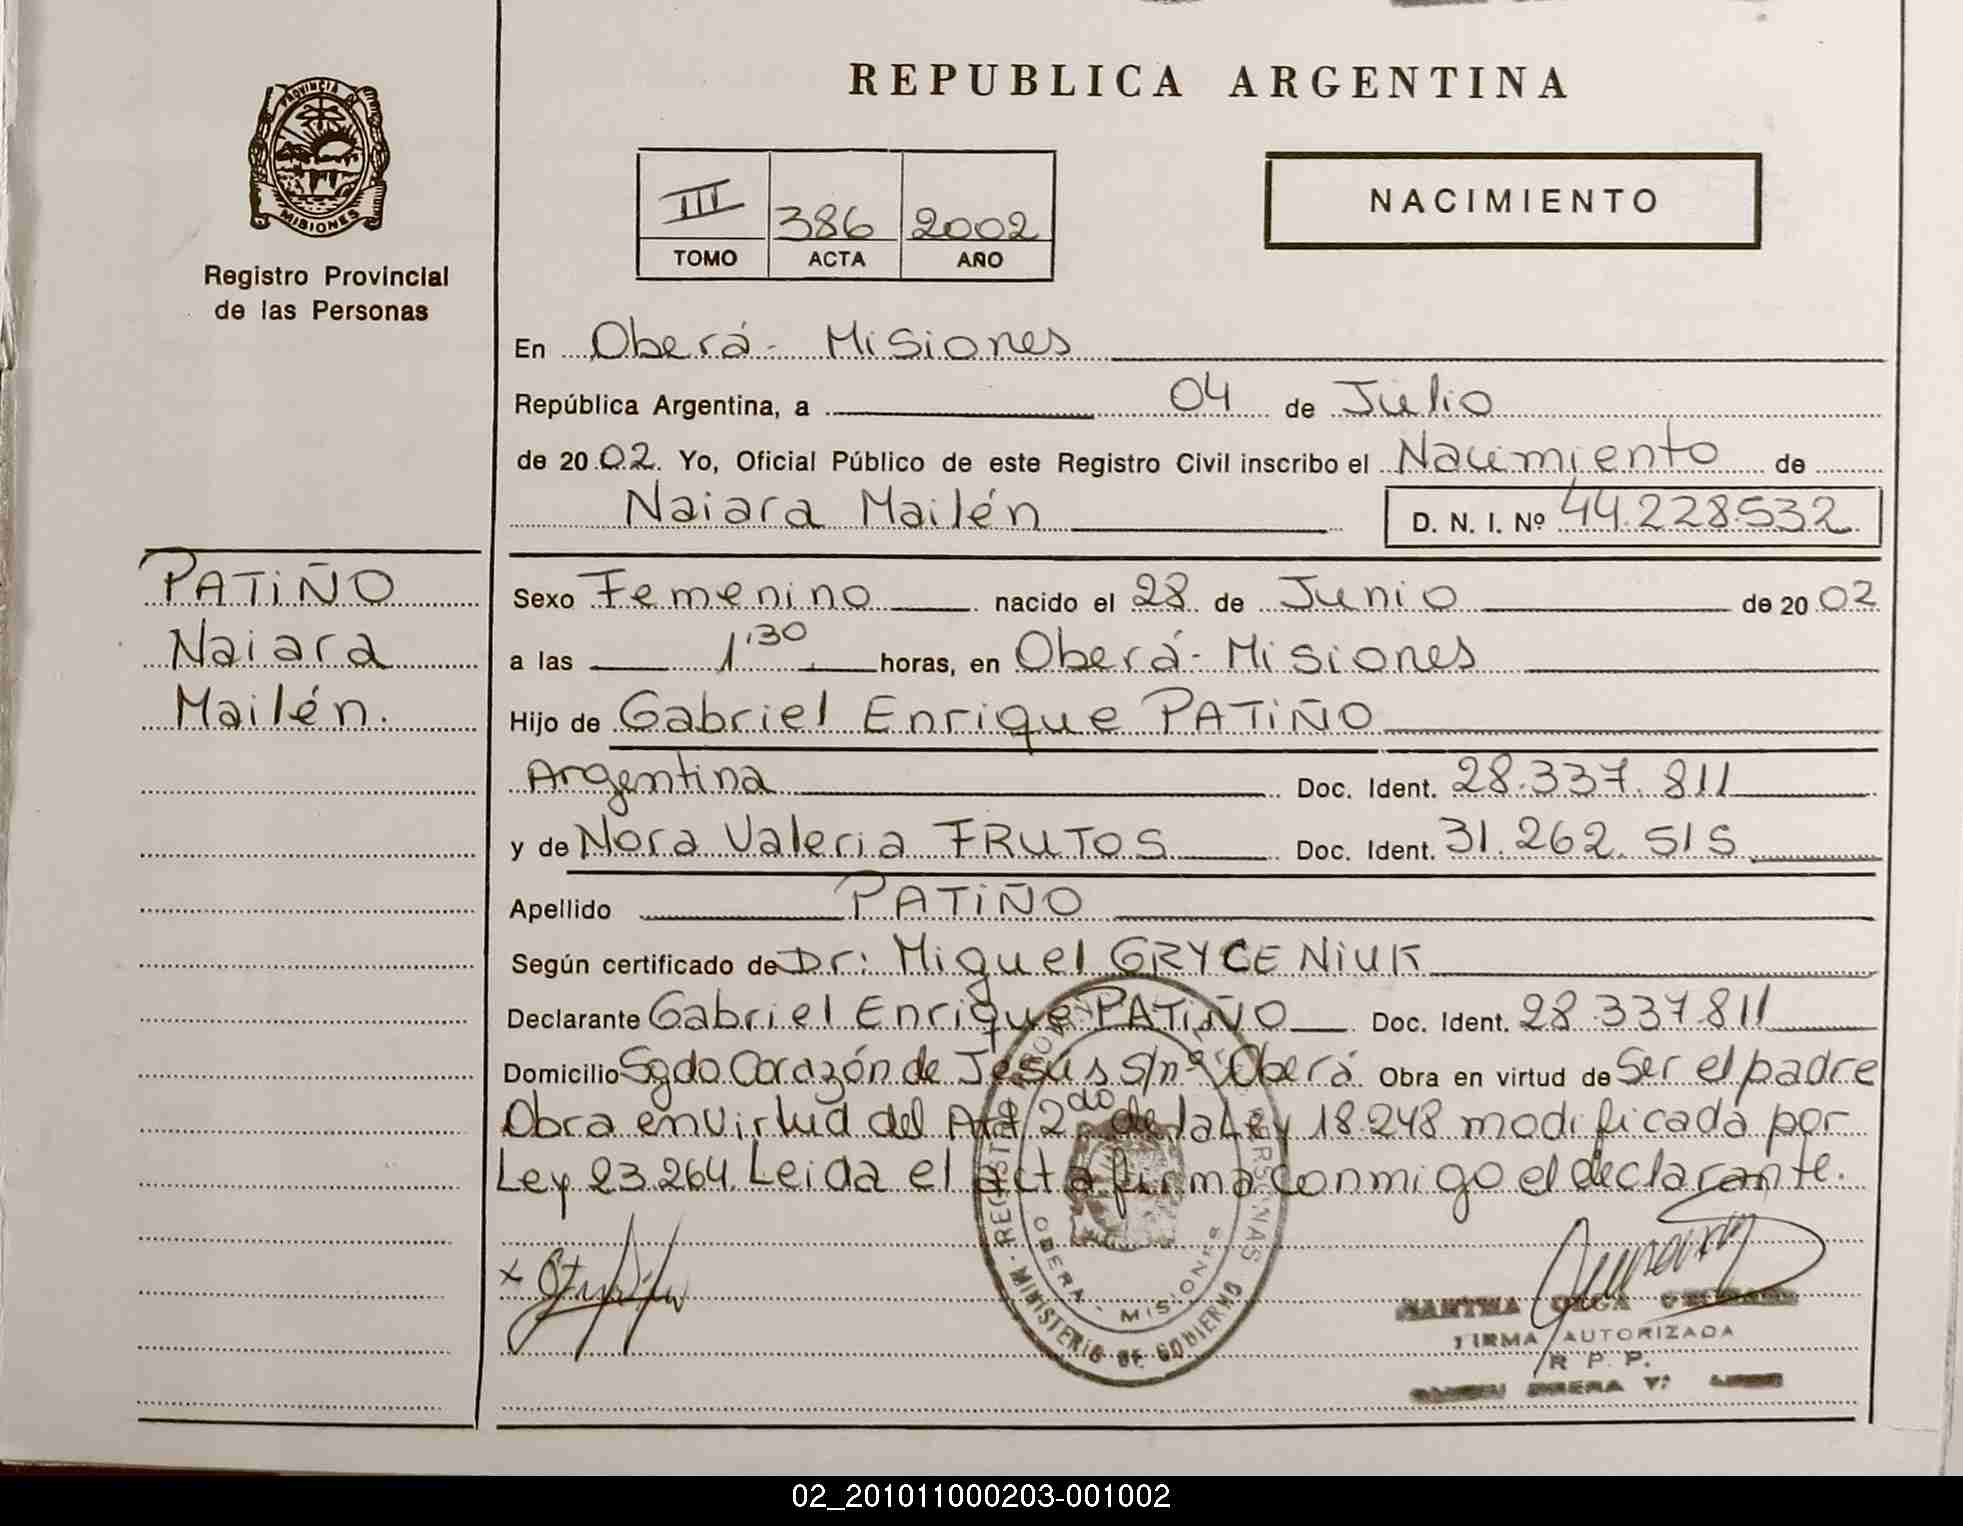 PROVINCIA DE
MISIONES
Registro Provincial
de las Personas
PATIÑO
Naiara
Mailén.
REPUBLICA ARGENTINA
III 386 2002
TOMO ACTA AÑO
NACIMIENTO
En Oberá - Misiones
República Argentina, a 04 de Julio
de 2002. Yo, Oficial Público de este Registro Civil inscribo el Nacimiento de
Naiara Mailén D. N. I. Nº 44.228.532
Sexo Femenino nacido el 28 de Junio de 2002
a las 1:30 horas, en Oberá - Misiones
Hijo de Gabriel Enrique PATIÑO
Argentina Doc. Ident. 28.337.811
y de Nora Valeria FRUTOS Doc. Ident. 31.262.515
Apellido PATIÑO
Según certificado de Dr: Miguel GRYCENIUK
Declarante Gabriel Enrique PATIÑO Doc. Ident. 28.337.811
Domicilio Sgdo Corazón de Jesús s/nº Oberá Obra en virtud de Ser el padre
Obra en virtud del Art 2do de la Ley 18.248 modificada por
Ley 23.264. Leida el acta firma conmigo el declarante.
x
OBERA - MISIONES
MINISTERIO DE GOBIERNO
FIRMA AUTORIZADA
R. P. P.
02_201011000203-001002